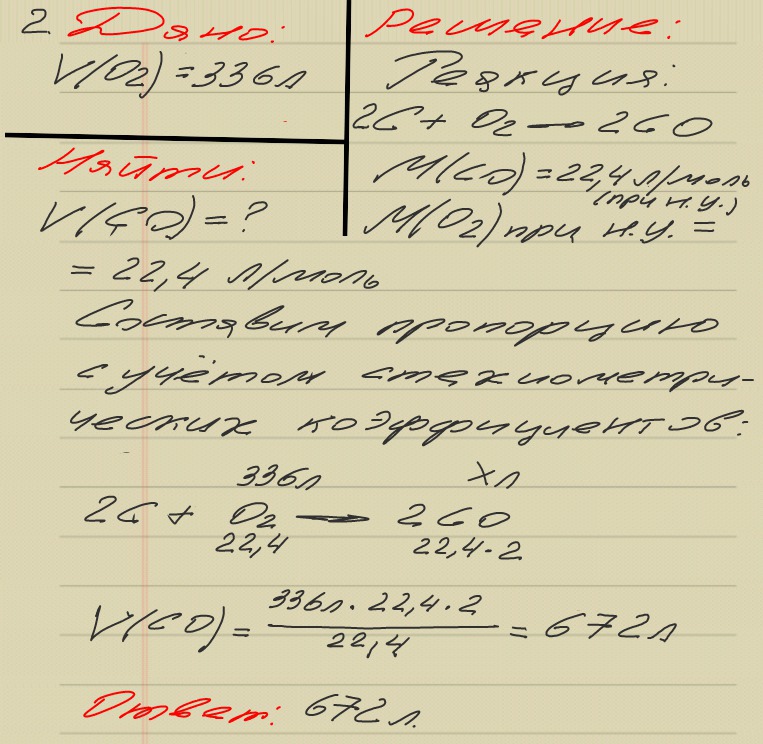 2. Дано:
V(O₂) = 336л
Найти:
V(CO) = ?
Решение:
Реакция:
2C + O₂ — 2CO
M(CO) = 22,4 л/моль
(при н.у.)
M(O₂) при н.у. =
= 22,4 л/моль
Составим пропорцию
с учётом стехиометри-
ческих коэффициентов:
336л xл
2C + O₂ — 2CO
22,4 22,4·2
V(CO) = 336л·22,4·2 / 22,4 = 672л
Ответ: 672л.